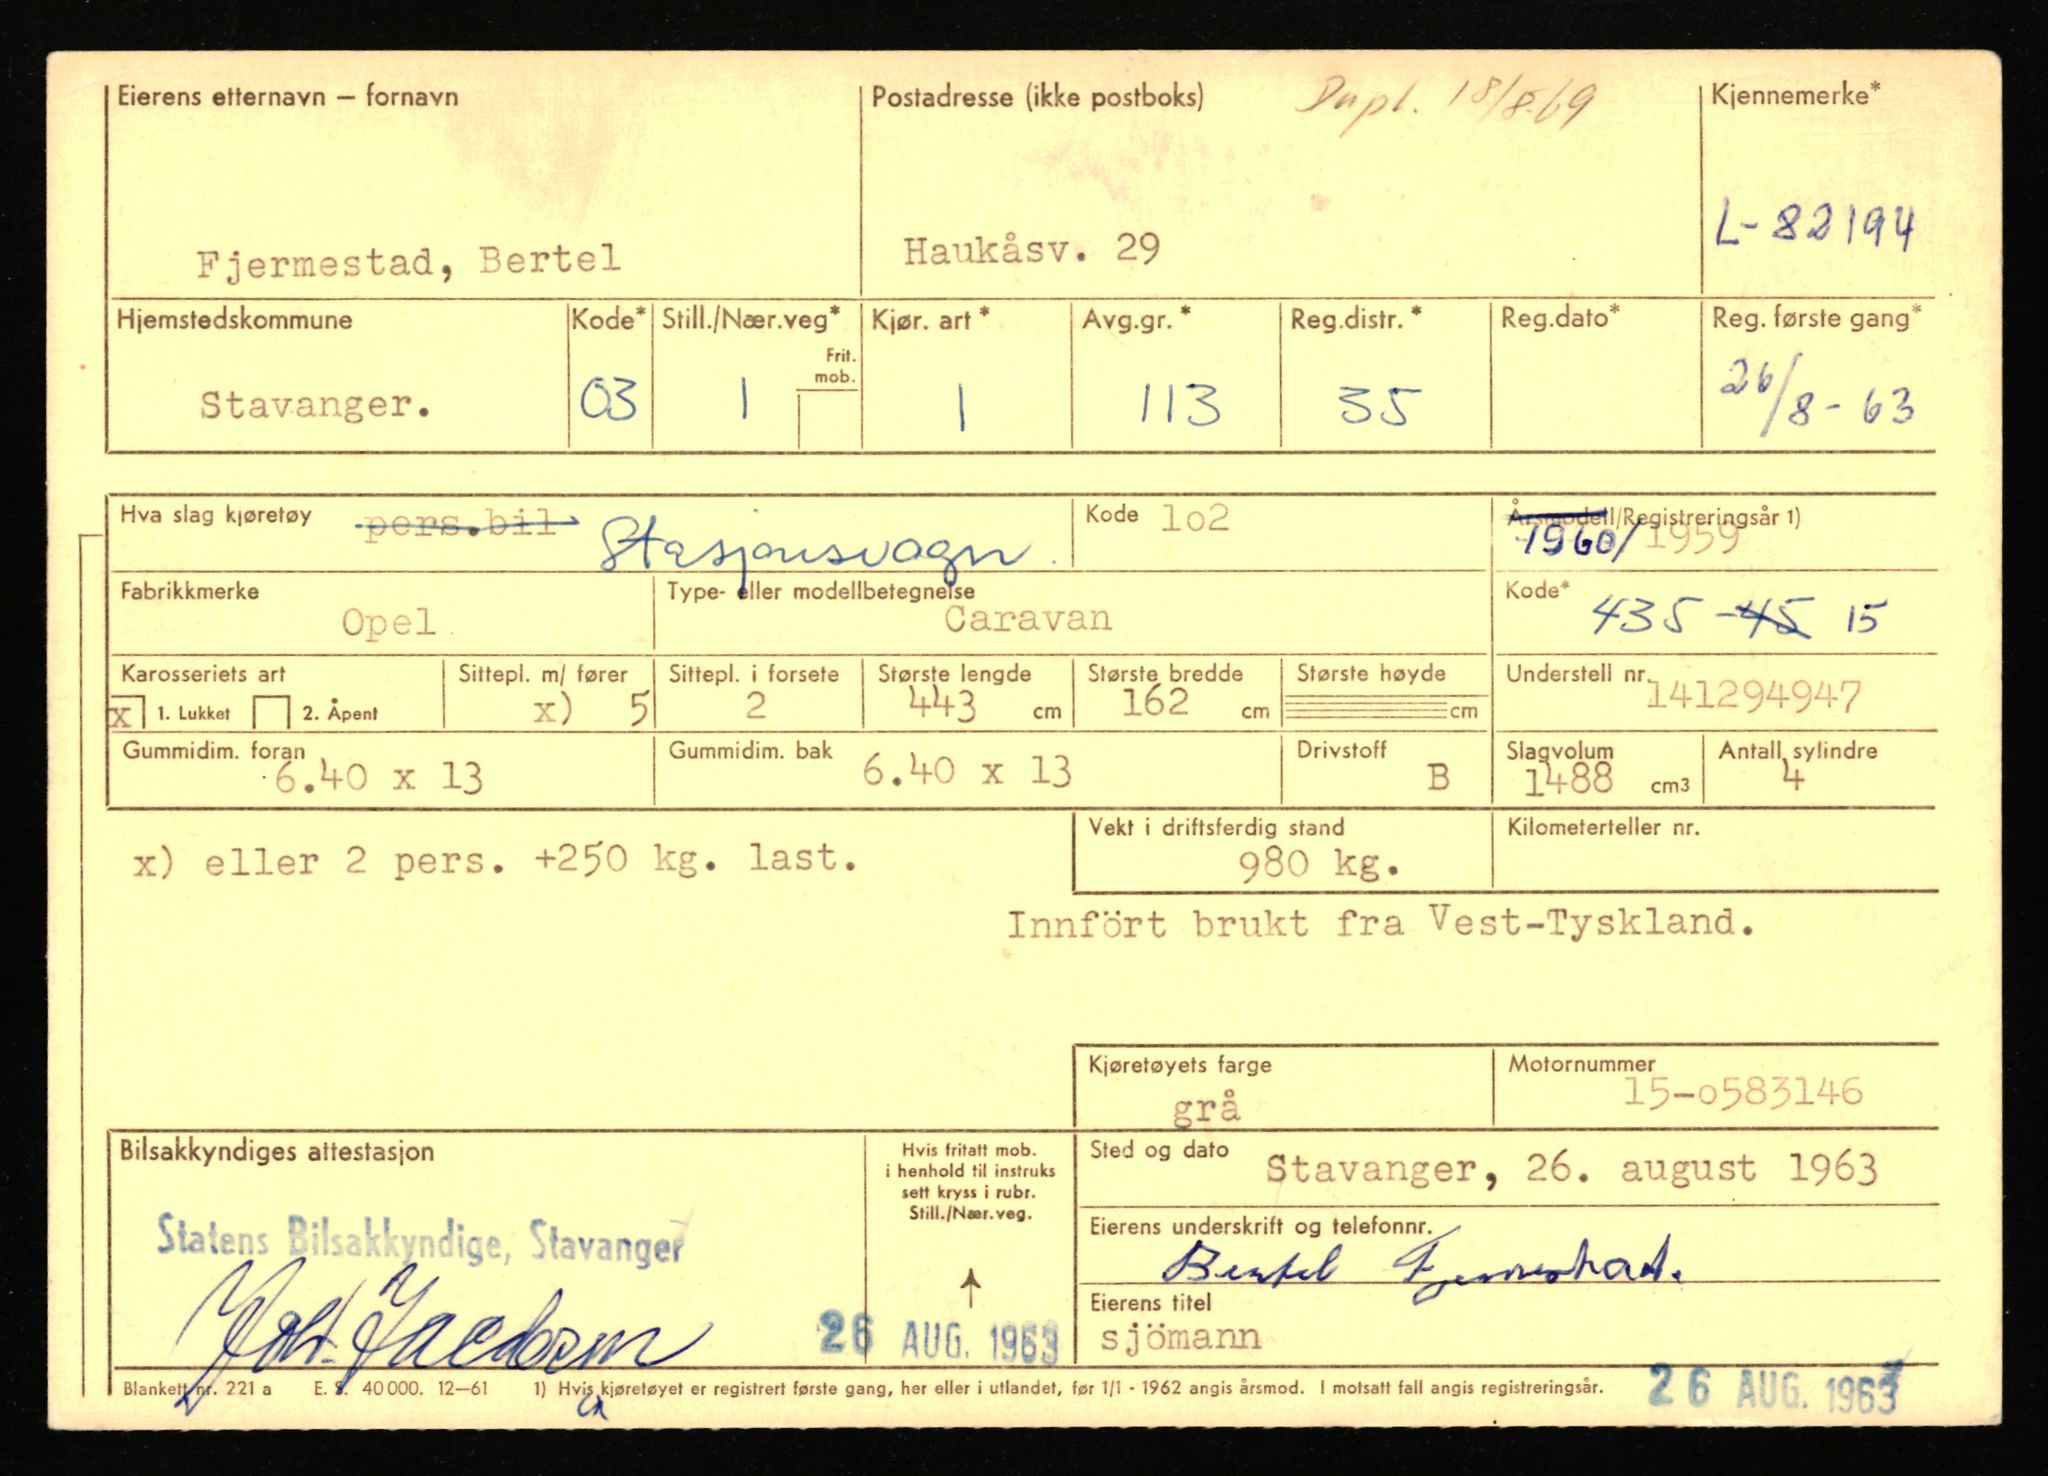 Eierens etternavn – fornavn
Postadresse (ikke postboks)
Dupl. 18/8-69
Kjennemerke*
Fjermestad, Bertel
Haukåsv. 29
L-82194
Hjemstedskommune
Kode*
Still./Nær.veg*
Kjør. art *
Avg.gr. *
Reg.distr. *
Reg.dato*
Reg. første gang*
Frit.
mob.
Stavanger.
03
1
1
113
35
26/8-63
Hva slag kjøretøy
pers.bil Stasjonsvogn.
Kode 1o2
Årsmodell/Registreringsår 1)
1960/1959
Fabrikkmerke
Opel
Type- eller modellbetegnelse
Caravan
Kode*
435-45 15
Karosseriets art
Sittepl. m/ fører
Sittepl. i forsete
Største lengde
Største bredde
Største høyde
Understell nr.
x 1. Lukket 2. Åpent
x) 5
2
443 cm
162 cm
cm
141294947
Gummidim. foran
Gummidim. bak
Drivstoff
Slagvolum
Antall sylindre
6.40 x 13
6.40 x 13
B
1488 cm3
4
x) eller 2 pers. +250 kg. last.
Vekt i driftsferdig stand
980 kg.
Kilometerteller nr.
Innfört brukt fra Vest-Tyskland.
Kjøretøyets farge
grå
Motornummer
15-o583146
Bilsakkyndiges attestasjon
Hvis fritatt mob.
i henhold til instruks
sett kryss i rubr.
Still./Nær.veg.
Sted og dato
Stavanger, 26. august 1963
Statens Bilsakkyndige, Stavanger
Eierens underskrift og telefonnr.
Bertel Fjermestad.
Jacobsen
26 AUG. 1963
Eierens titel
sjömann
Blankett nr. 221 a E. S. 40 000. 12–61 1) Hvis kjøretøyet er registrert første gang, her eller i utlandet, før 1/1 - 1962 angis årsmod. I motsatt fall angis registreringsår.
26 AUG. 1963